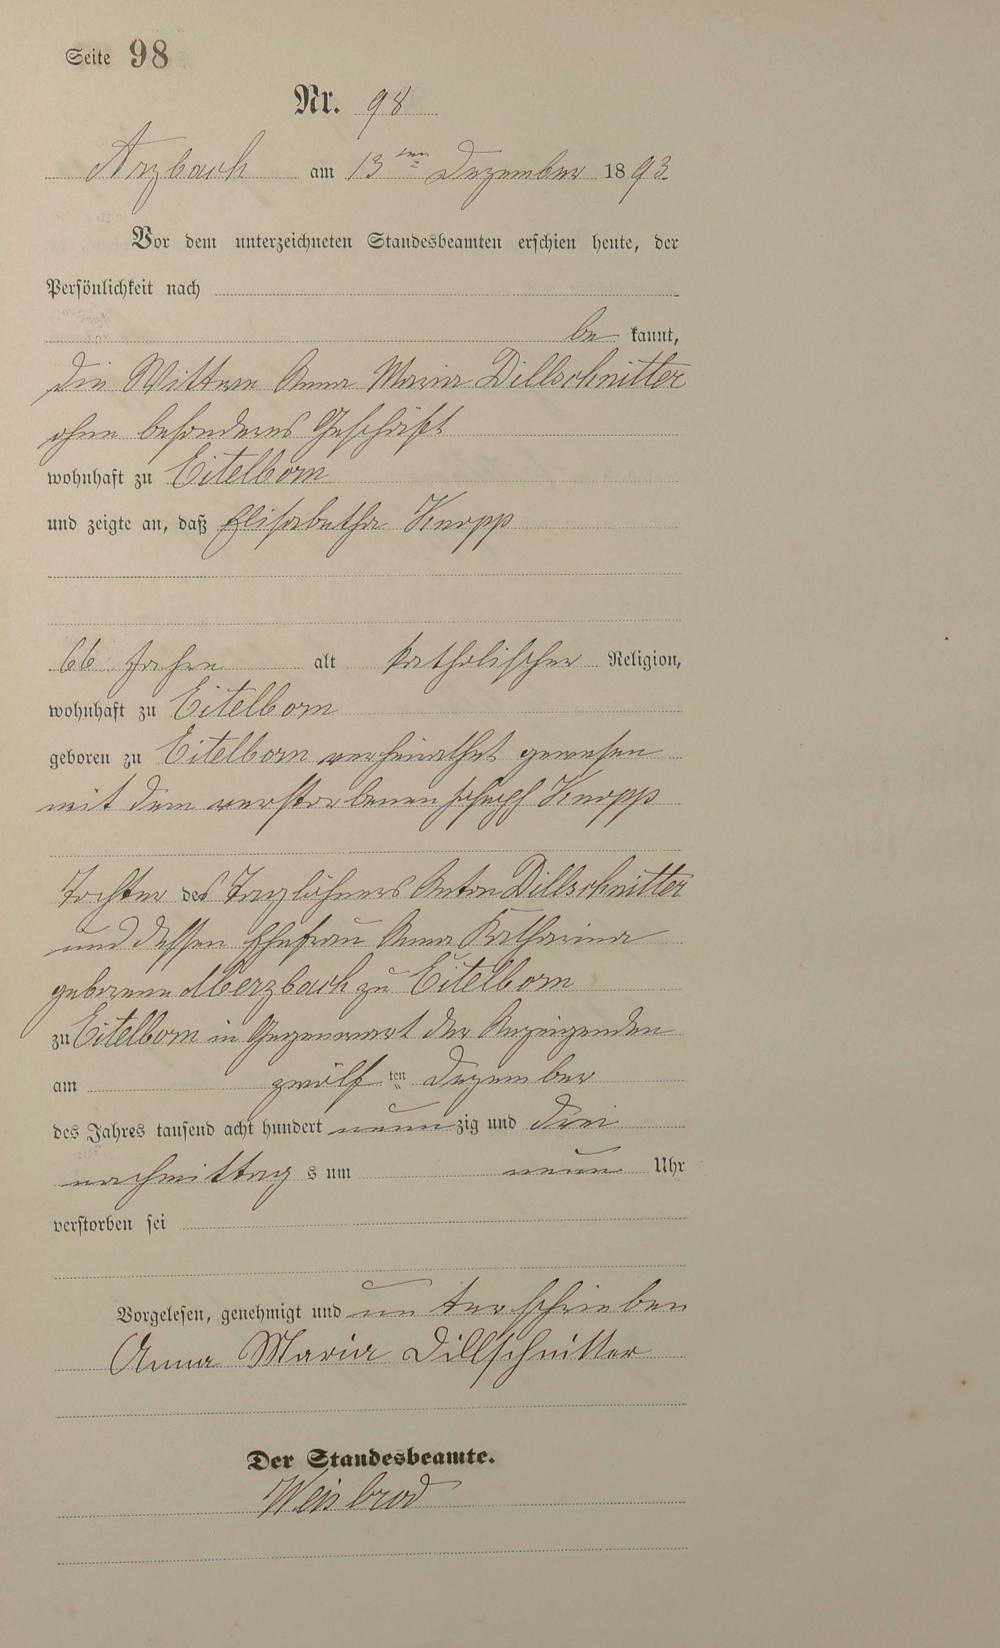 Seite 98
Nr. 98
Arzbach am 13ten Dezember 1893
Vor dem unterzeichneten Standesbeamten erschien heute, der
Persönlichkeit nach
bekannt,
die Wittwe Anna Maria Dillschnitter
ohne besonderes Geschäft
wohnhaft zu Eitelborn
und zeigte an, daß Elisabetha Knopp
66 Jahre alt katholischer Religion,
wohnhaft zu Eitelborn
geboren zu Eitelborn verheirathet gewesen
mit dem verstorbenen Joseph Knopp
Tochter des Taglöhners Anton Dillschnitter
und dessen Ehefrau Anna Katharina
geborene Merzbach zu Eitelborn
zu Eitelborn in Gegenwart der Anzeigenden
am zwölften Dezember
des Jahres tausend acht hundert neunzig und drei
nachmittags um neun Uhr
verstorben sei
Vorgelesen, genehmigt und unterschrieben
Anna Maria Dillschnitter
Der Standesbeamte.
Weisbrod